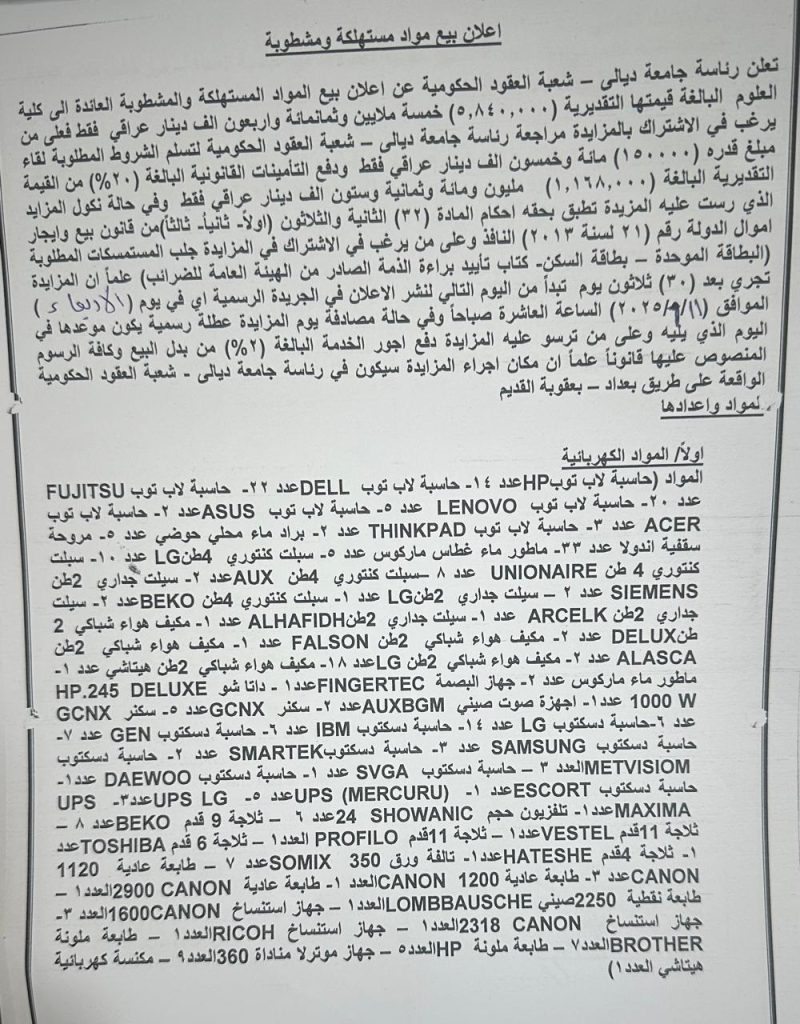 اعلان بيع مواد مستهلكة ومشطوبة
تعلن رئاسة جامعة ديالى – شعبة العقود الحكومية عن اعلان بيع المواد المستهلكة والمشطوبة العائدة الى كلية
العلوم البالغة قيمتها التقديرية (٥,٨٤٠,٠٠٠) خمسة ملايين وثمانمائة واربعون الف دينار عراقي فقط فعلى من
يرغب في الاشتراك بالمزايدة مراجعة رئاسة جامعة ديالى – شعبة العقود الحكومية لتسلم الشروط المطلوبة لقاء
مبلغ قدره (١٥٠٠٠٠) مائة وخمسون الف دينار عراقي فقط ودفع التأمينات القانونية البالغة (٢٠%) من القيمة
التقديرية البالغة (١,١٦٨,٠٠٠) مليون ومائة وثمانية وستون الف دينار عراقي فقط وفي حالة نكول المزايد
الذي رست عليه المزيدة تطبق بحقه احكام المادة (٣٢) الثانية والثلاثون (اولاً- ثانياً- ثالثاً)من قانون بيع وايجار
اموال الدولة رقم (٢١ لسنة ٢٠١٣) النافذ وعلى من يرغب في الاشتراك في المزايدة جلب المستمسكات المطلوبة
(البطاقة الموحدة – بطاقة السكن- كتاب تأييد براءة الذمة الصادر من الهيئة العامة للضرائب) علماً ان المزايدة
تجري بعد (٣٠) ثلاثون يوم تبدأ من اليوم التالي لنشر الاعلان في الجريدة الرسمية اي في يوم (الاربعاء)
الموافق (٢٠٢٥/ /١١) الساعة العاشرة صباحاً وفي حالة مصادفة يوم المزايدة عطلة رسمية يكون موعدها في
اليوم الذي يليه وعلى من ترسو عليه المزايدة دفع اجور الخدمة البالغة (٢%) من بدل البيع وكافة الرسوم
المنصوص عليها قانوناً علماً ان مكان اجراء المزايدة سيكون في رئاسة جامعة ديالى - شعبة العقود الحكومية
الواقعة على طريق بغداد – بعقوبة القديم
لمواد واعدادها
اولاً/ المواد الكهربائية
المواد (حاسبة لاب توبHPعدد ١٤- حاسبة لاب توب DELLعدد ٢٢- حاسبة لاب توب FUJITSU
عدد ٢٠- حاسبة لاب توب LENOVO عدد ٥- حاسبة لاب توب ASUSعدد ٢- حاسبة لاب توب
ACER عدد ٣- حاسبة لاب توب THINKPAD عدد ٢- براد ماء محلي حوضي عدد ٥- مروحة
سقفية اندولا عدد ٣٣- ماطور ماء غطاس ماركوس عدد ٥- سبلت كنتوري 4طنLG عدد ١٠- سبلت
كنتوري 4 طن UNIONAIRE عدد ٨ –سبلت كنتوري 4طن AUXعدد ٢- سبلت جداري 2طن
SIEMENS عدد ٢ – سبلت جداري 2طنLG عدد ١- سبلت كنتوري 4طن BEKOعدد ٢- سبلت
جداري 2طن ARCELK عدد ١- سبلت جداري 2طنALHAFIDH عدد ١- مكيف هواء شباكي 2
طنDELUX عدد ٢- مكيف هواء شباكي 2طن FALSON عدد ١- مكيف هواء شباكي 2طن
ALASCA عدد ٢- مكيف هواء شباكي 2طن LGعدد ١٨- مكيف هواء شباكي 2طن هيتاشي عدد ١-
ماطور ماء ماركوس عدد ٢- جهاز البصمة FINGERTECعدد١- داتا شو HP.245 DELUXE
1000 W عدد١- اجهزة صوت صيني AUXBGMعدد ٢- سكنر GCNXعدد ٥- سكنر GCNX
عدد ٦-حاسبة دسكتوب LG عدد ١٤- حاسبة دسكتوب IBM عدد ٦- حاسبة دسكتوب GEN عدد ٧-
حاسبة دسكتوب SAMSUNG عدد ٣- حاسبة دسكتوبSMARTEK عدد ٢- حاسبة دسكتوب
METVISIOMالعدد ٣ – حاسبة دسكتوب SVGA عدد ١- حاسبة دسكتوب DAEWOO عدد١-
حاسبة دسكتوب ESCORTعدد ١- UPS (MERCURU)عدد ٥- UPS LGعدد٣- UPS
MAXIMAعدد١- تلفزيون حجم 24 SHOWANICعدد ٦ – ثلاجة 9 قدم BEKOعدد ٨ –
ثلاجة 11قدم VESTELعدد١ – ثلاجة 11قدم PROFILO العدد١ – ثلاجة 6 قدم TOSHIBAعدد
١- ثلاجة 4قدم HATESHEعدد١- تالفة ورق SOMIX 350عدد ٧ – طابعة عادية 1120
CANONعدد ٣- طابعة عادية 1200 CANONالعدد ١- طابعة عادية 2900 CANONالعدد١ –
طابعة نقطية 2250صيني LOMBBAUSCHEالعدد١ – جهاز استنساخ 1600CANONالعدد ٣-
جهاز استنساخ 2318 CANONالعدد١ – جهاز استنساخ RICOHالعدد١ – طابعة ملونة
BROTHERالعدد٧ – طابعة ملونة HPالعدد٥ – جهاز موترلا مناداة 360العدد٩ – مكنسة كهربائية
هيتاشي العدد١)